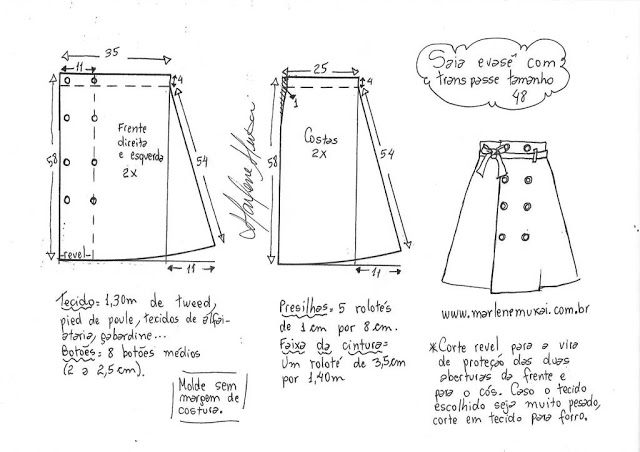 35
11
4
58
Frente
direita
e esquerda
2X
54
revel
11
Marlene Mukai
25
4
1
Costas
2X
58
54
11
Saia evasê com
transpasse tamanho
48
www.marlenemukai.com.br
Tecido: 1,30m de tweed,
pied de poule, tecidos de alfai-
ataria, gabardine...
Botões: 8 botões médios
(2 a 2,5 cm).
Molde sem
margem de
costura.
Presilhas: 5 rolotés
de 1 cm por 8 cm.
Faixa da cintura:
Um roloté de 3,5cm
por 1,40m
*Corte revel para a vira
de proteção das duas
aberturas da frente e
para o cós. Caso o tecido
escolhido seja muito pesado,
corte em tecido para forro.